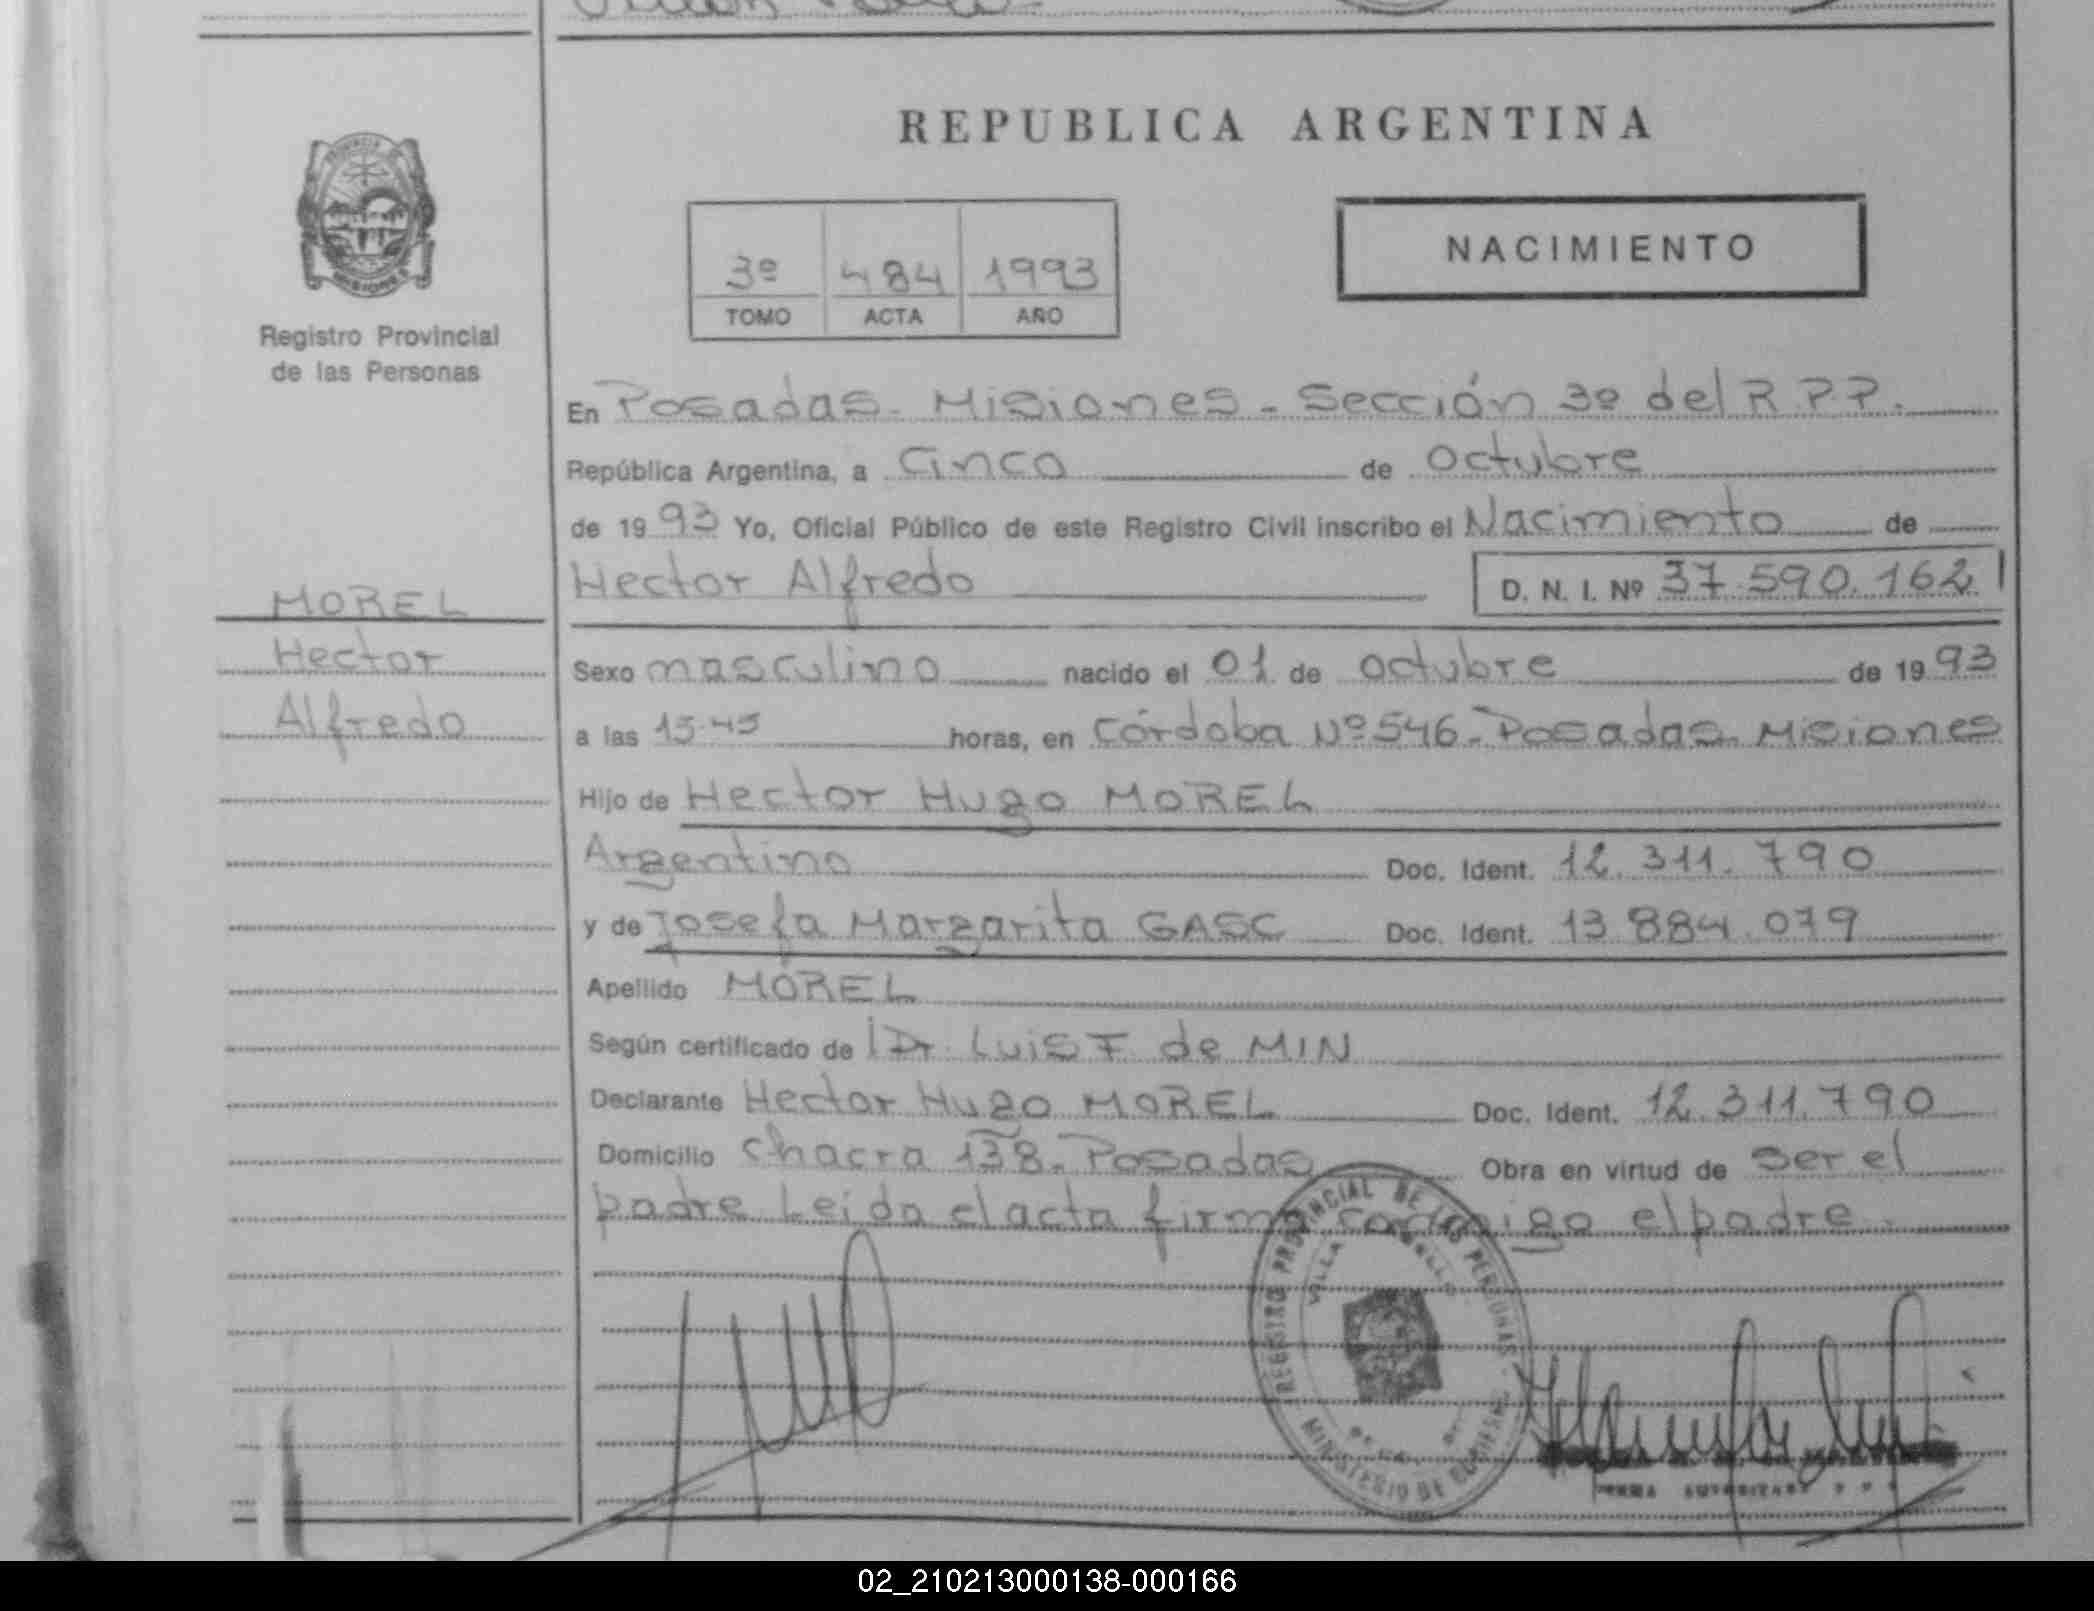 REPUBLICA ARGENTINA
PROVINCIA DE
MISIONES
Registro Provincial
de las Personas
3º 484 1993
TOMO ACTA AÑO
NACIMIENTO
En Posadas. Misiones - Sección 3º del R.P.P.
República Argentina, a Cinco de Octubre
de 1993 Yo, Oficial Público de este Registro Civil inscribo el Nacimiento de
Hector Alfredo D. N. I. Nº 37.590.162
MOREL
Hector
Alfredo
Sexo masculino nacido el 01 de octubre de 1993
a las 15.45 horas, en Córdoba Nº 546 - Posadas. Misiones
Hijo de Hector Hugo MOREL
Argentino Doc. Ident. 12.311.790
y de Josefa Margarita GASC Doc. Ident. 13.884.079
Apellido MOREL
Según certificado de Dr. Luis F de MIN
Declarante Hector Hugo MOREL Doc. Ident. 12.311.790
Domicilio Chacra 138. Posadas Obra en virtud de ser el
padre Leida el acta firma conmigo el padre.
REGISTRO PROVINCIAL DE LAS PERSONAS
VILLA
MINISTERIO DE GOBIERNO
02_210213000138-000166